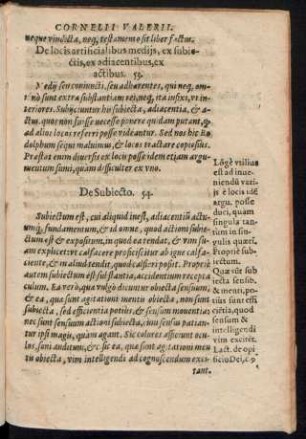 CORNELII VALERII.
neque vindicta, neq; testamento sit liber factus.
De locis artificialibus medijs, ex subie-
ctis, ex adiacentibus, ex
actibus. 53.
Medij seu coniuncti, seu adhærentes, qui neq; om-
nò sunt extra substantiam rei, neq; ita infixi, vt in-
teriores. Subijciuntur his subiecta, adiacentia, & a-
ctus: quos non facesse necesse ponere quidam putant, q̃
ad alios locos referri posse videantur. Sed nos hic Ro
dolphum sequi maluimus, & locos tractare copiosius.
Præstat enim diuersis ex locis posse idem etiam argu-
mentum sumi, quàm difficulter ex vno.
De Subiecto. 54.
Subiectum est, cui aliquid inest, adiacentiũ actu-
umq; fundamentum, & id omne, quod actioni subie-
ctum est & expositum, in quod ea tendat, & vim su-
am explicet: vt calfacere perspicifitur ab igne calfa-
ciente, & in aliud tendit, quod calsieri posit. Propriè
autem subiectum est substantia, accidentium recepta-
culum. Ea verò, quæ vulgò dicuntur obiecta sensium,
& ea, quæ sunt agitationi mentis obiecta, non sunt
subiecta, sed efficientia potiùs, & sensum mouentia:
nec sunt sensuum actioni subiecta, imò sensus patian-
tur ipsi magis, quàm agant. Sic colores afficiunt ocu-
los, soni auditum, & sic ea, quæ sunt agitationi men-
tis obiecta, vim intelligendi ad cognoscendum exci-
tant.
Lõgè vtilius
est ad inue-
niendũ varijs
è locis idẽ
arg. posse
duci, quam
singula tan-
tùm in sin-
gulis quæri.
Propriè sub-
iectum.
Quæ vt sub
iecta sensib.
& menti, po-
tiùs sunt effi
cietia, quòd
sensum &
intelligendi
vim excitẽt.
Lact. de opi-
ficio Dei, c. 9